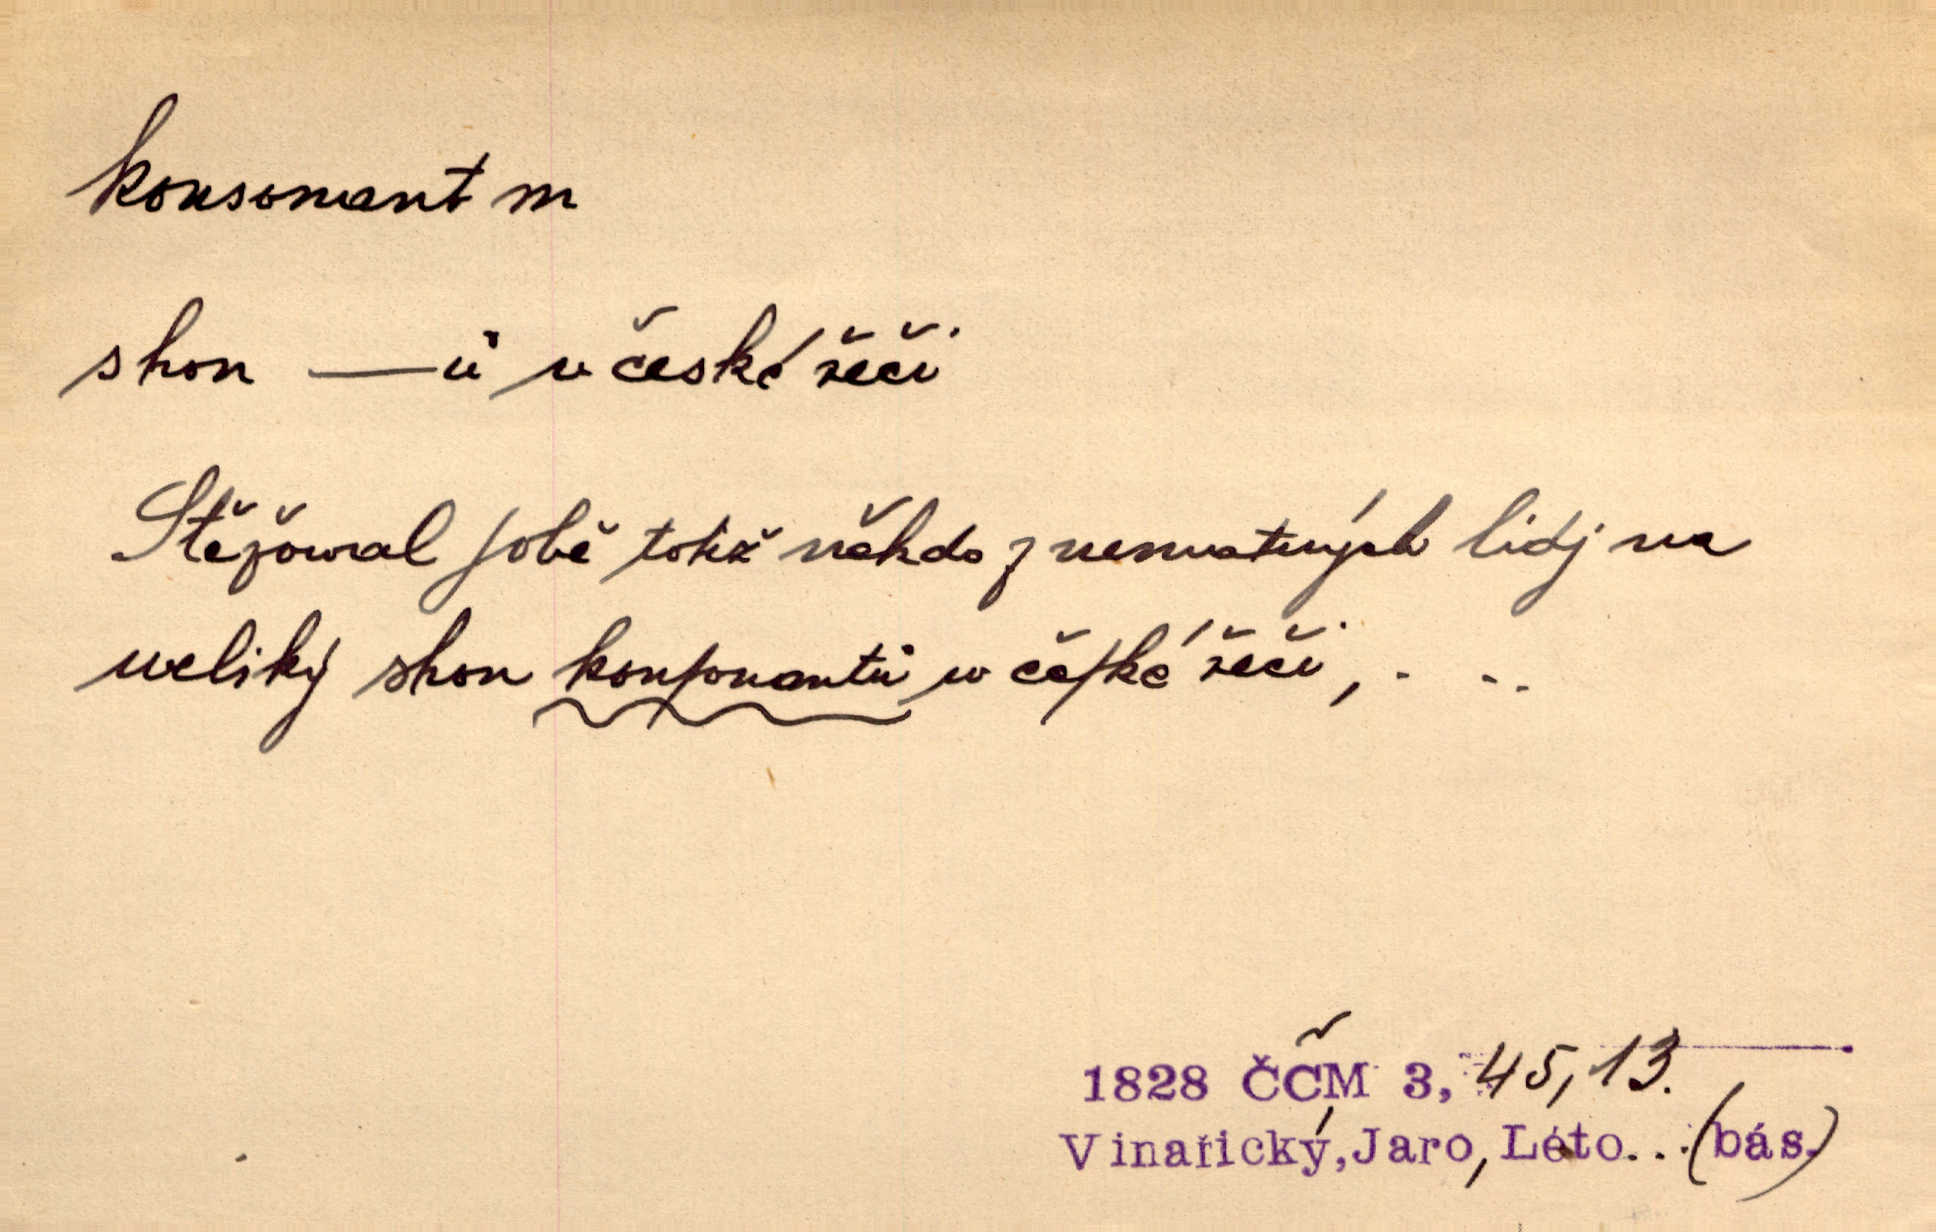 konsonant m
shon —ů v české řeči
Stěžowal ſobě totiž někdo z nenvatných lidj na
weliký shon konſonantů w čeſké řeči, . . .
1828 ČČM 3, 45, 13.
Vinařický, Jaro, Léto...(bás.)